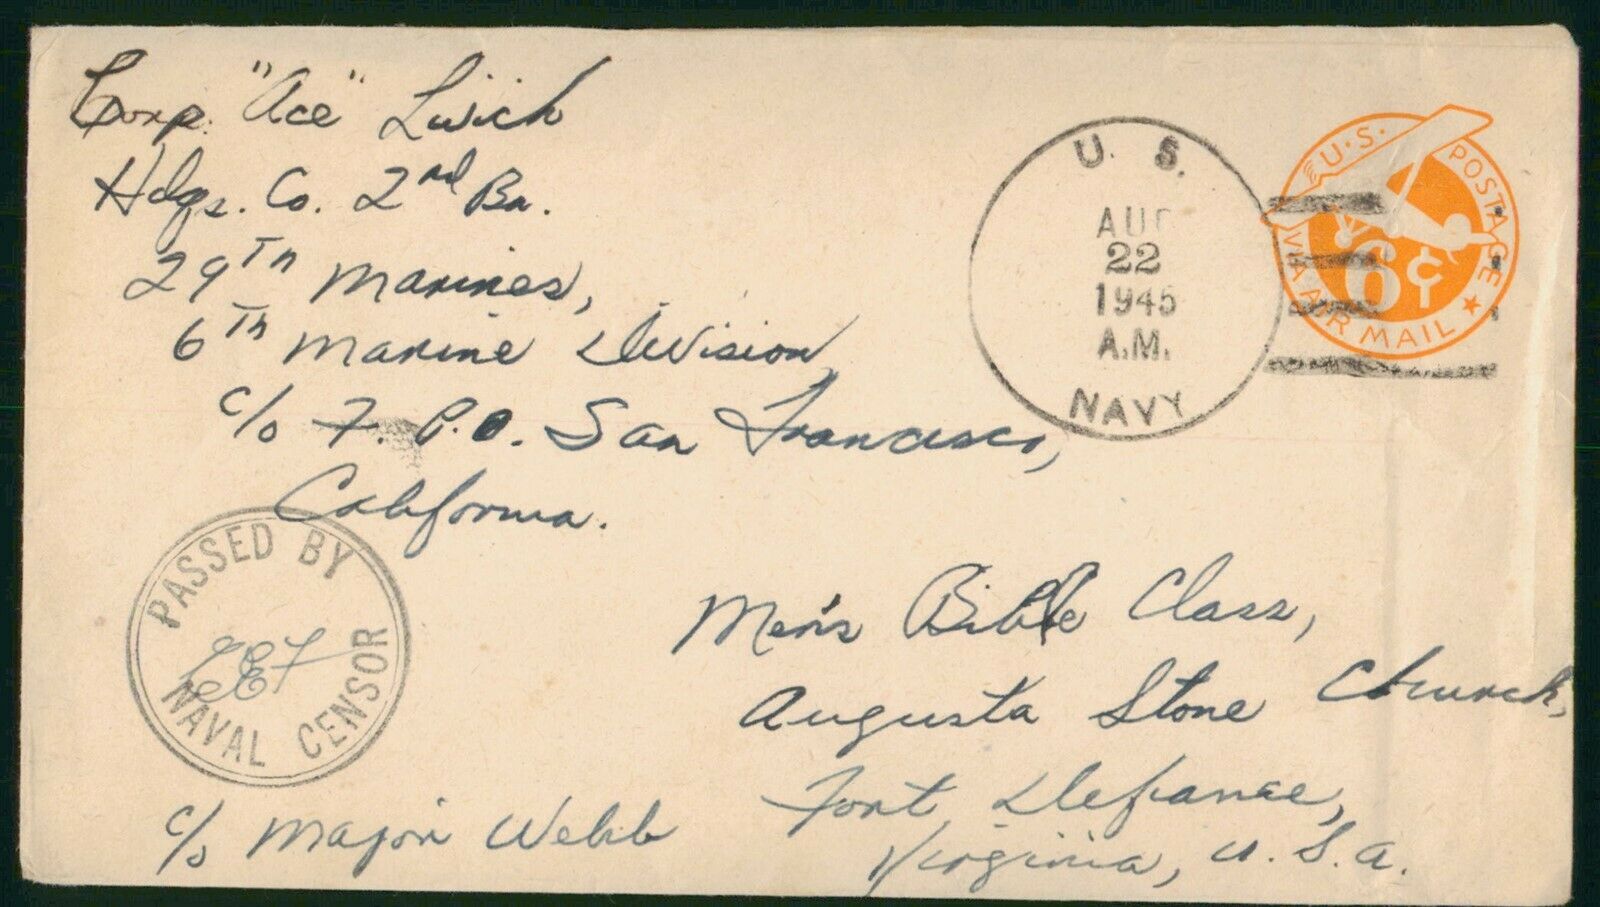 Corp. "Ace" Lwich
Hdqs. Co. 2nd Bn.
29Th Marines,
6Th Marine Division
c/o F.P.O. San Francisco,
California.
U. S.
AUG
22
1945
A.M.
NAVY
U.S. POSTAGE
6¢
VIA AIR MAIL
PASSED BY
LEF
NAVAL CENSOR
Men's Bible Class,
Augusta Stone Church,
Fort Defiance,
Virginia, U.S.A.
c/o Major Webb